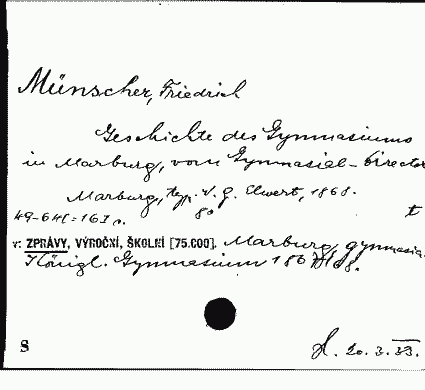 Münscher, Friedrich
Geschichte des Gymnasiums
in Marburg, vom Gymnasial-Director
Marburg, typ. N. G. Elwert, 1868.
8° t
v: ZPRÁVY, VÝROČNÍ, ŠKOLNÍ [75.000]. Marburg, gymnasia.
Königl. Gymnasium 1867/68.
S 20.3.33.